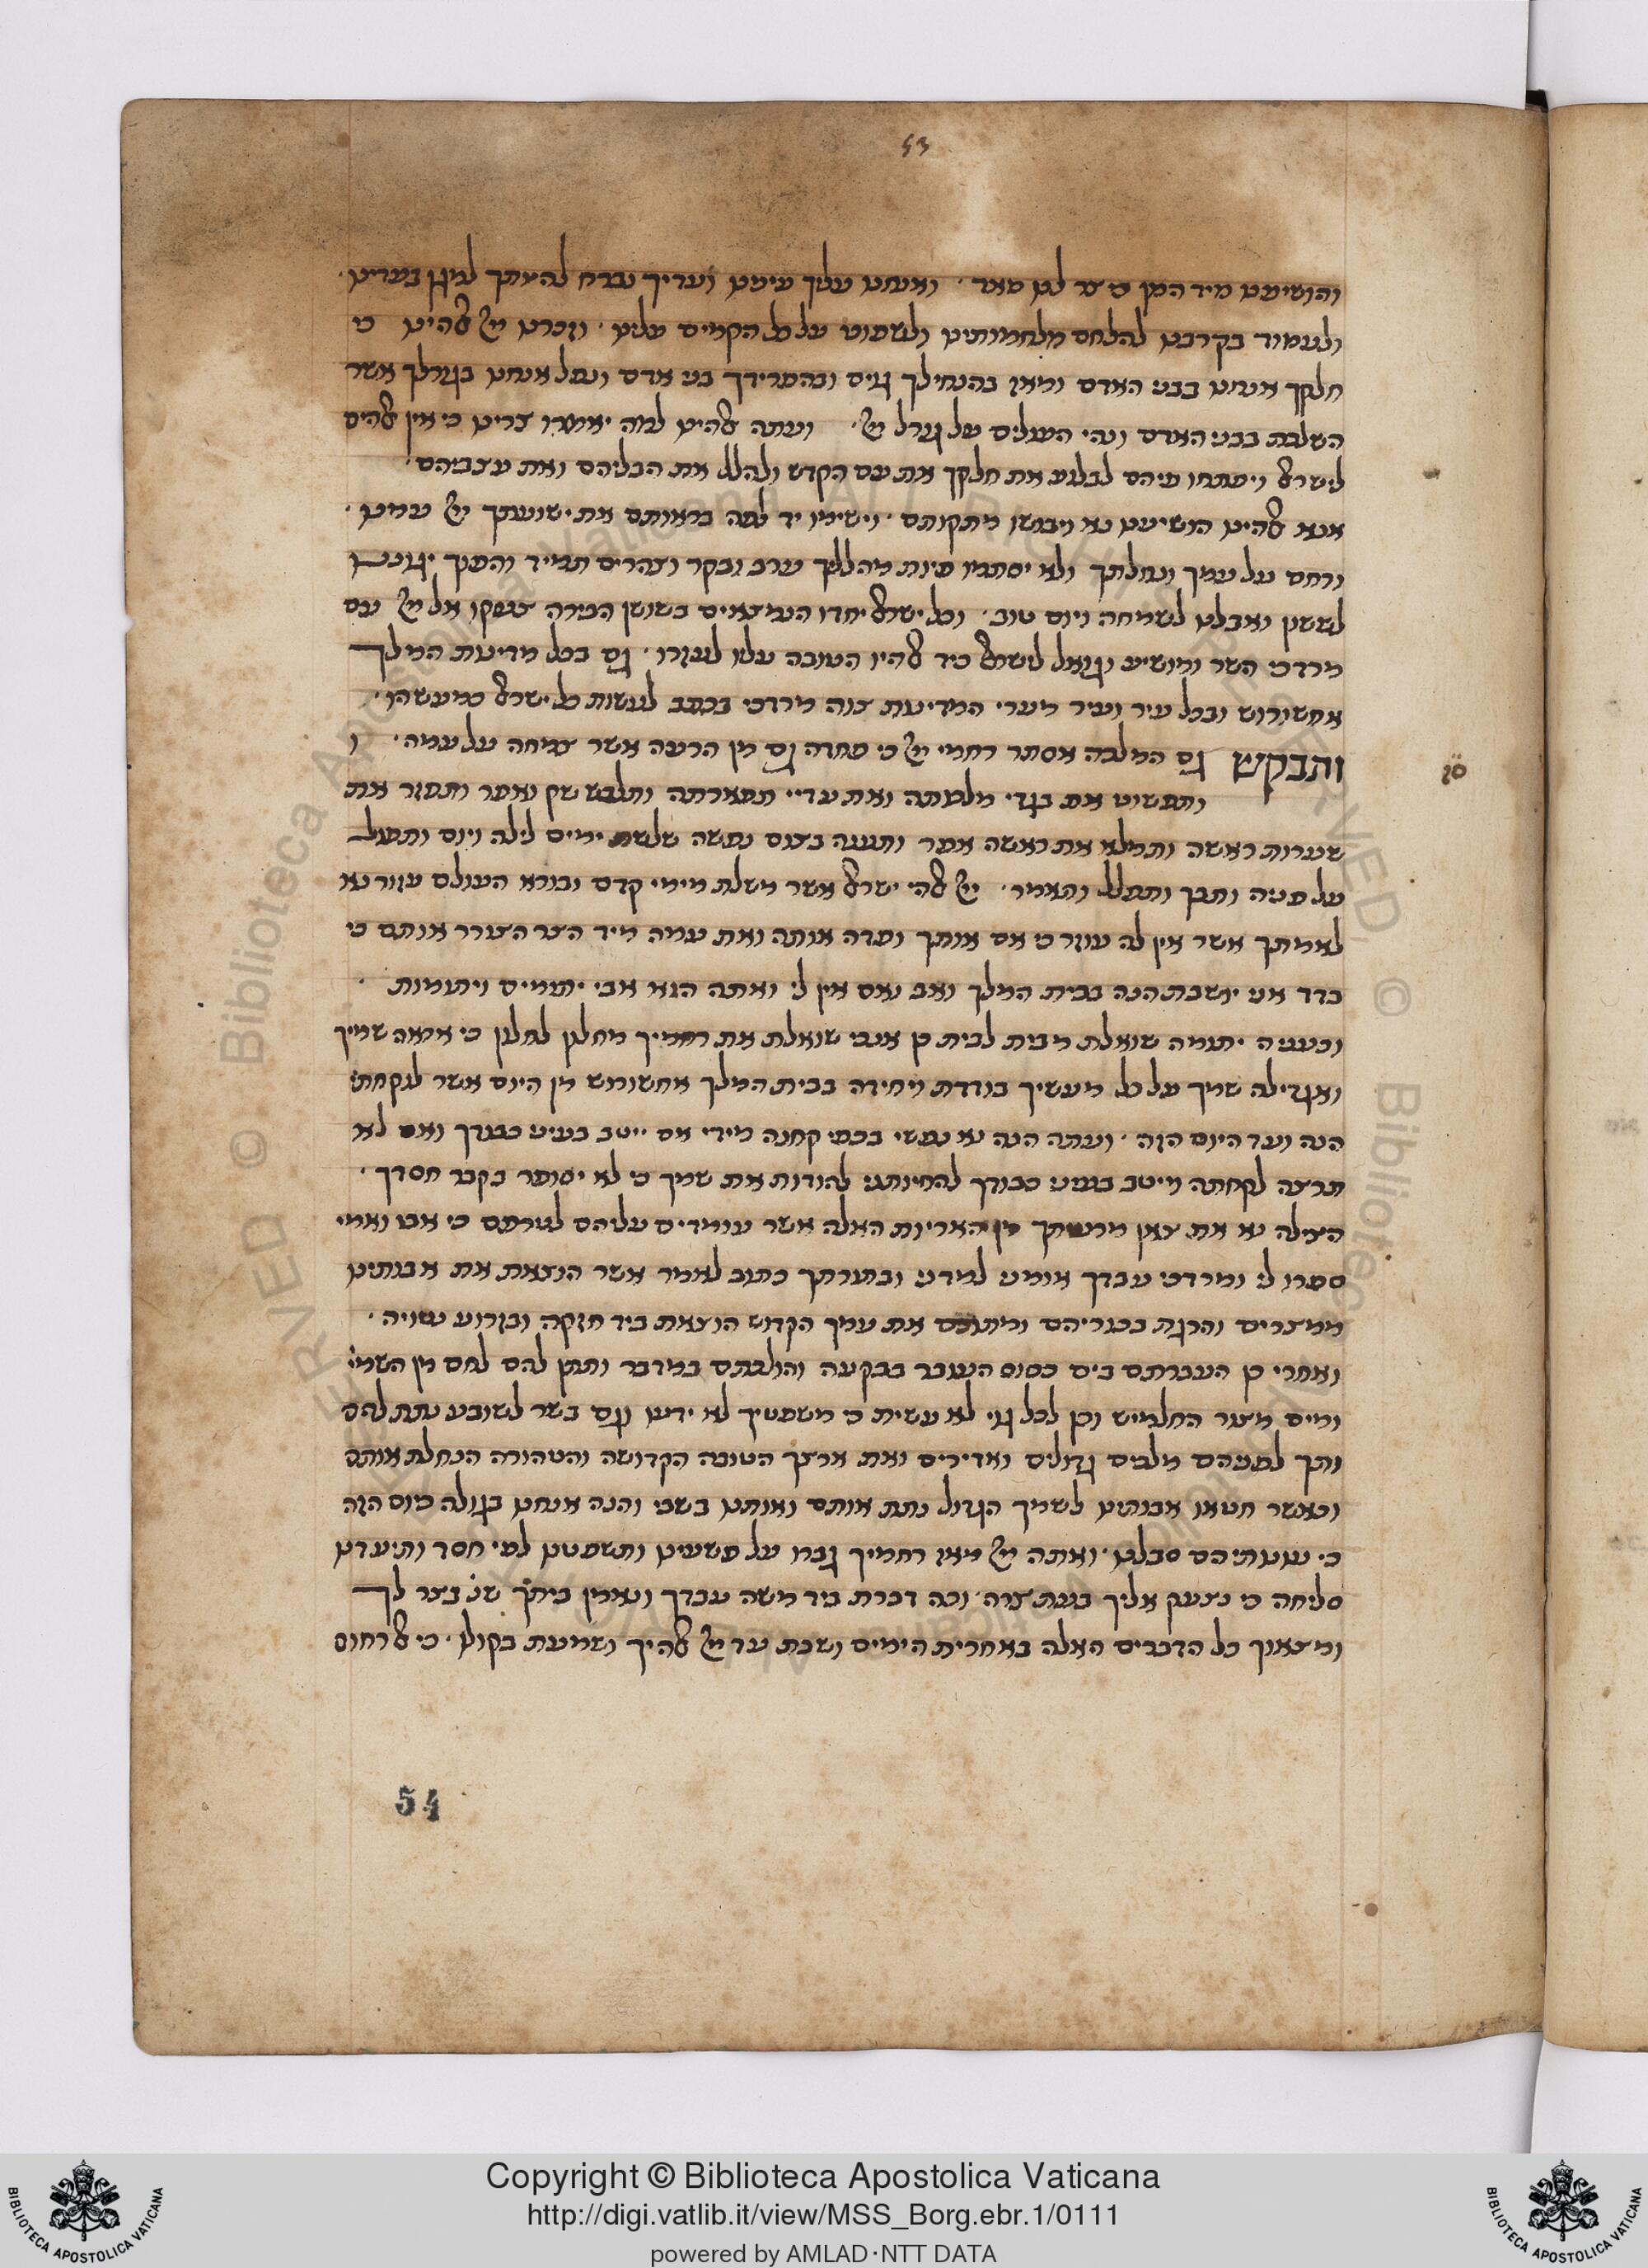 53
והושיענו מיד המן כי צר לנו מאד · ואנחנו עליך עינינו ועדיך נברח להיותך למגן בעדינו ·
ולעמוד בקרבנו להלחם מלחמותינו ולשפוט על כל הקמים עלינו · וזכרנו ייי אלהינו כי
חלקך אנחנו בבני האדם ומאז בהנחילך גוים ובהפרידך בני אדם ונפל אנחנו בגורלך אשר
השלכת בבני האדם ונהי העולים על גורל ייי · ועתה אלהינו למה יאמרו צרינו כי אין אלהים
לישראל ויפתחו פיהם לבלוע את חלקך את עם הקדש ולהלל את הבליהם ואת עצביהם ·
אנא אלהינו הושיענו נא ויבושו מתקותם · וישימו יד לפה בראותם את ישועתך ייי עמנו ·
ורחם על עמך ונחלתך ולא יסתמו פיות מהלליך ערב ובקר וצהרים תמיד והפוך יגוננו
לששון ואבלנו לשמחה ויום טוב · וכל ישראל יחדו הנמצאים בשושן הבירה צעקו אל ייי עם
מרדכי השר ומושיע וגואל לישראל כיד אלהיו הטובה עליו לעזרו · גם בכל מדינות המלך
אחשורוש ובכל עיר ועיר מערי המדינות צוה מרדכי בכתב לעשות כל ישראל כמעשהו ·
ותבקש גם המלכה אסתר רחמי ייי כי פחדה גם מן הרעה אשר צמחה על עמה · ו
ותפשוט את בגדי מלכותה ואת עדיי תפארתה ותלבש שק ואפר ותפזר את
שערות ראשה ותמלא את ראשה אפר ותענה בצום נפשה שלשת ימים לילה ויום ותפול
על פניה ותבך ותפלל ותאמר · ייי אלהי ישראל אשר משלת מימי קדם ובורא העולם עזור נא
לאמתך אשר אין לה עוזר כי אם אותך ופדה אותה ואת עמה מיד הצר הצורר אותם כי
בדד אני יושבת הנה בבית המלך ואב ואם אין לי ואתה הוא אבי יתומים ויתומות ·
וכעניה יתומה שואלת מבית לבית כן אנכי שואלת את רחמיך מחלון לחלון כי איומה שמיך
ואגדילה שמך על כל מעשיך בודדת ויחידה בבית המלך אחשורוש מן היום אשר לוקחתי
הנה ועד היום הזה · ועתה הנה נא נפשי בכפי קחנה מידי אם ייטב בעיני כבודך ואם לא
תרצה לקחתה מיטב בעיני כבודך להחיותני להודות את שמך כי לא יסופר בקבר חסדך ·
הצילה נא את צאן מרעיתך מן האריות האלה אשר עומדים עליהם לטרפם כי אבי ואמי
ספרו לי ומרדכי עבדך אומני למדני ובתורתך כתוב לאמר אשר הוצאת את אבותינו
ממצרים והרגת בכוריהם ומתוכם את עמך הקדוש הוצאת ביד חזקה ובזרוע נטויה ·
ואחרי כן העברתם בים כסוס העובר בבקעה והולכתם במדבר ותתן להם לחם מן השמי'
ומים מצור החלמיש וכן לכל גוי לא עשית כי משפטיך לא ידעו וגם בשר לשובע נתת להם
ותך לפניהם מלכים גדולים ואדירים ואת ארצך הטובה הקדושה והטהורה הנחלת אותם
וכאשר חטאו אבותינו לשמך הגדול נתת אותם ואותנו בשבי והנה אנחנו בגולה כיום הזה
כי עונותיהם סבלנו · ואתה ייי מאז רחמיך גברו על פשעינו ותשפטנו לפי חסד ותיעדנו
סליחה כי נצעק אליך בעת צרה · וכה דברת ביד משה עבדך ונאמן ביתך שנ' בצר לך
ומצאוך כל הדברים האלה באחרית הימים ושבת עד ייי אלהיך ושמעת בקולו · כי אל רחום
54
Copyright © Biblioteca Apostolica Vaticana
http://digi.vatlib.it/view/MSS_Borg.ebr.1/0111
powered by AMLAD·NTT DATA